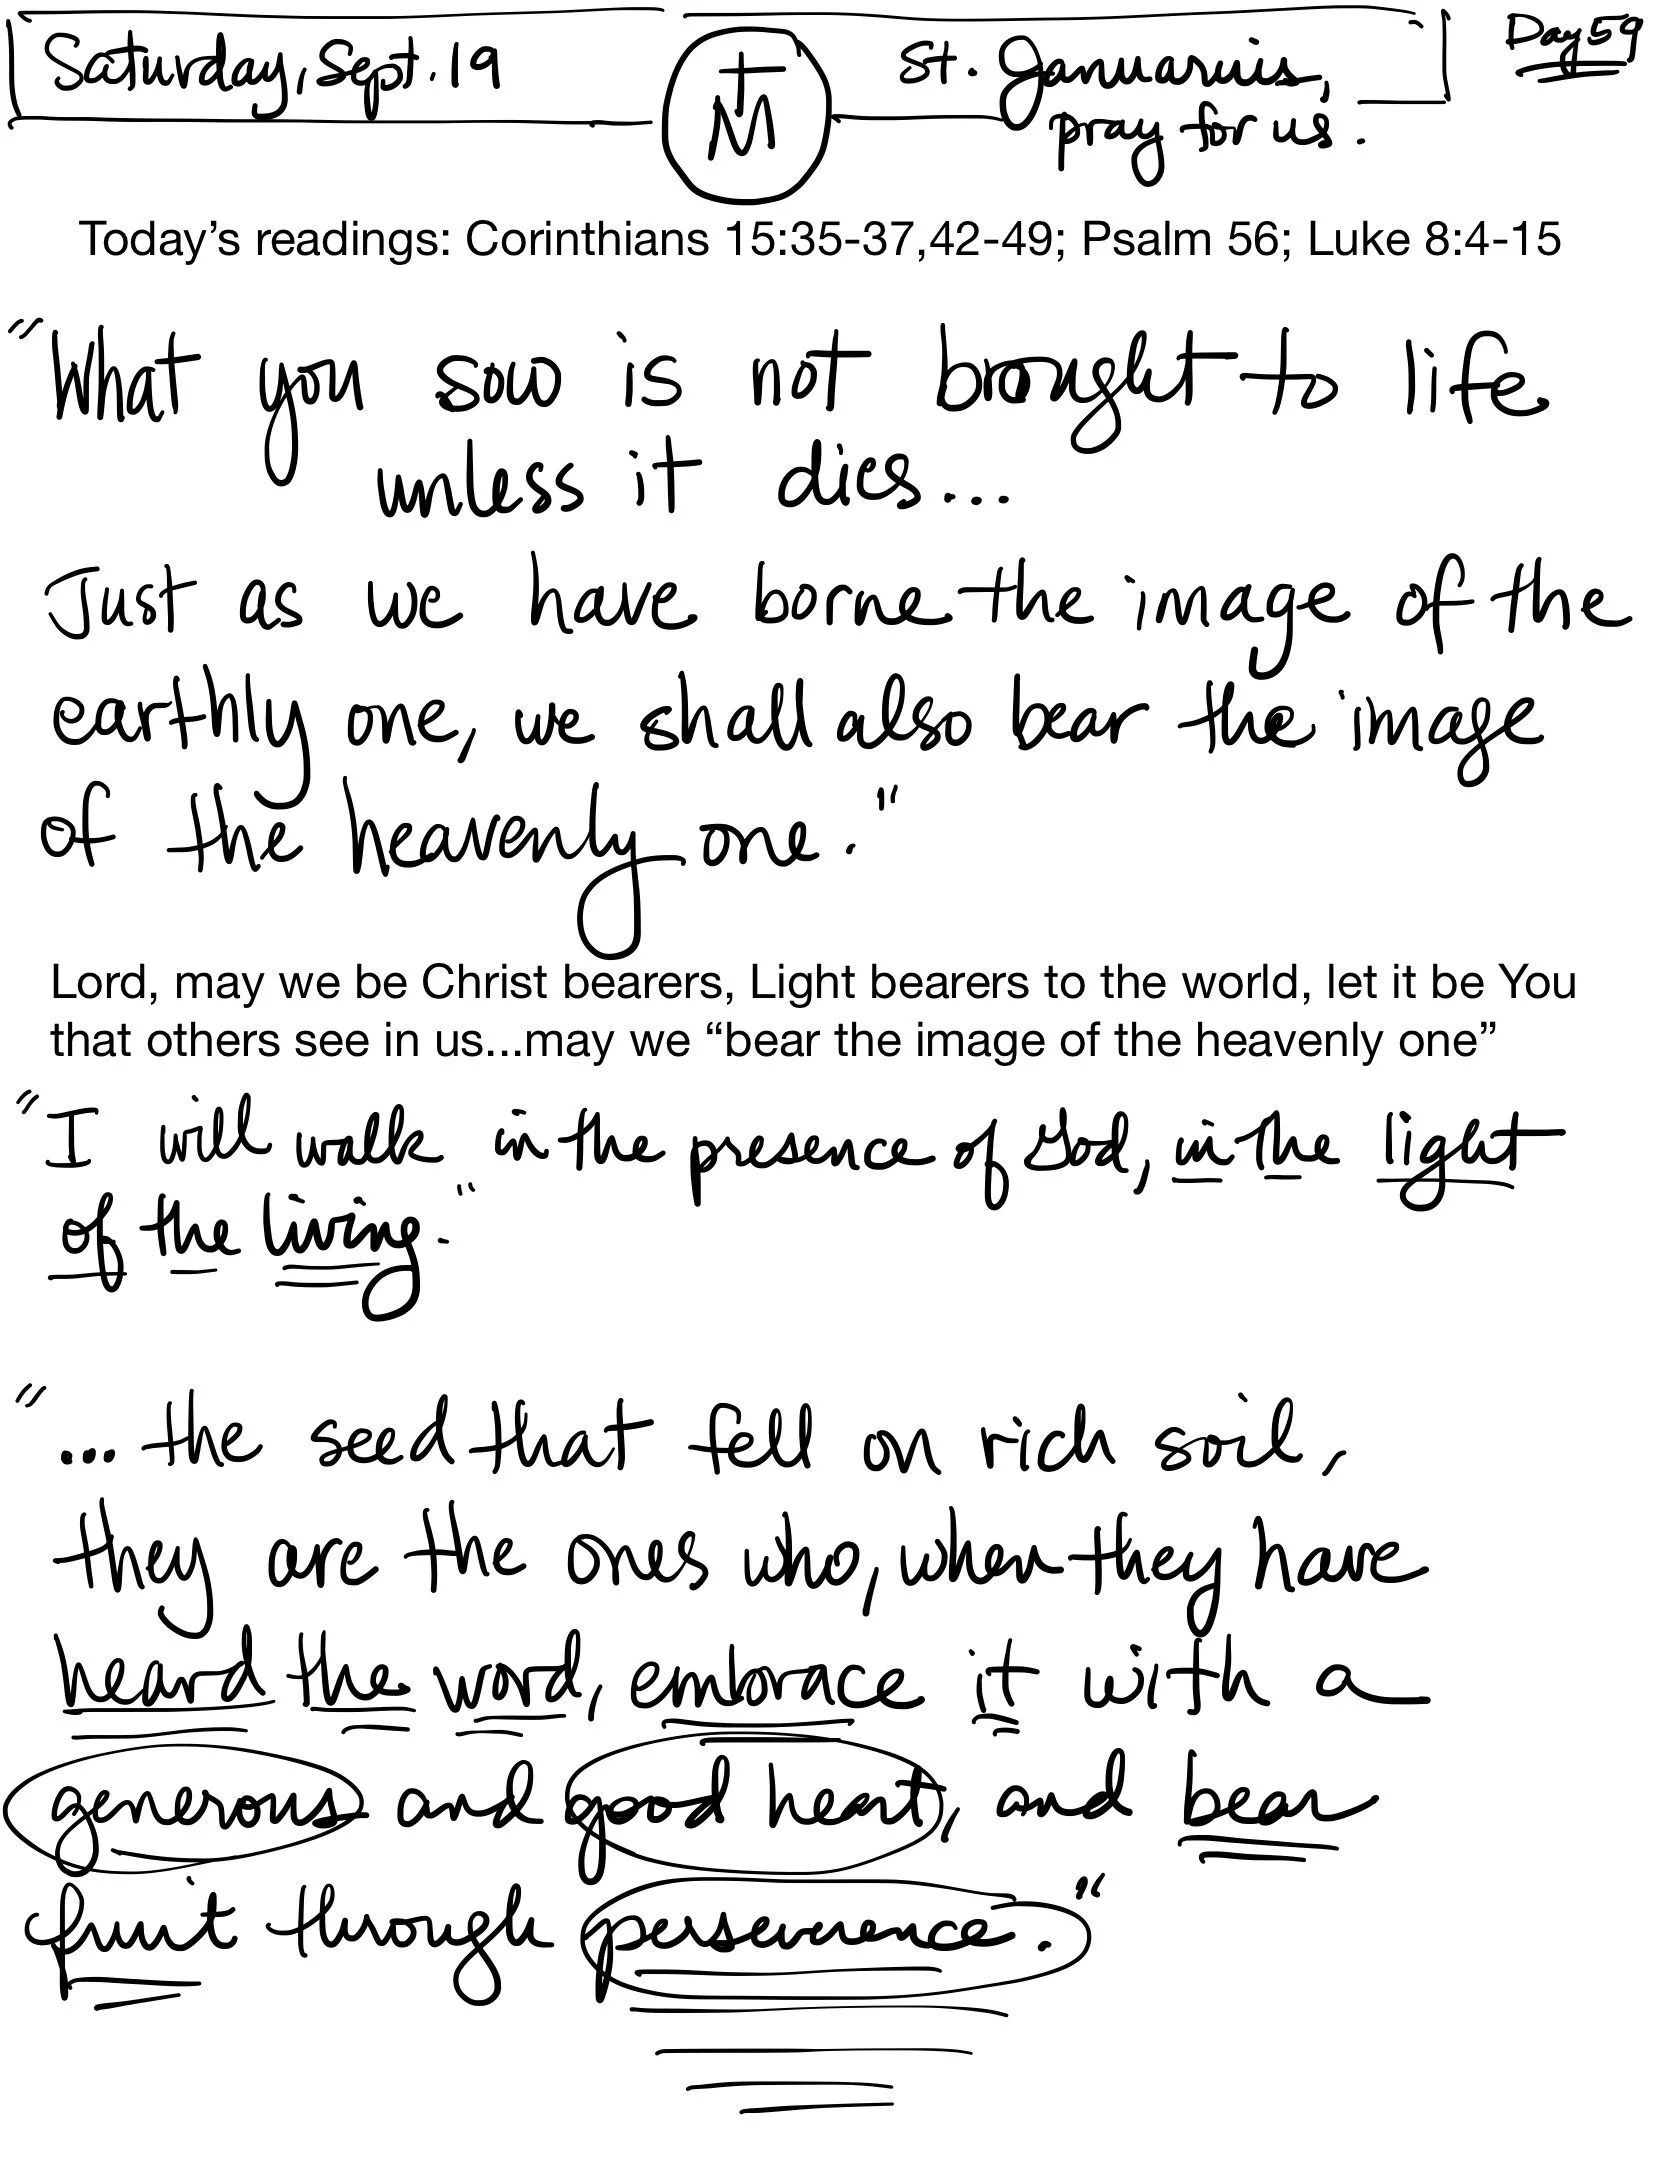 Saturday, Sept. 19
M
St. Januarius,
pray for us.
Day 59
Today's readings: Corinthians 15:35-37,42-49; Psalm 56; Luke 8:4-15
"What you sow is not brought to life
unless it dies...
Just as we have borne the image of the
earthly one, we shall also bear the image
of the heavenly one."
Lord, may we be Christ bearers, Light bearers to the world, let it be You
that others see in us...may we “bear the image of the heavenly one”
"I will walk in the presence of God, in the light
of the living."
"... the seed that fell on rich soil,
they are the ones who, when they have
heard the word, embrace it with a
generous and good heart, and bear
fruit through perseverence."